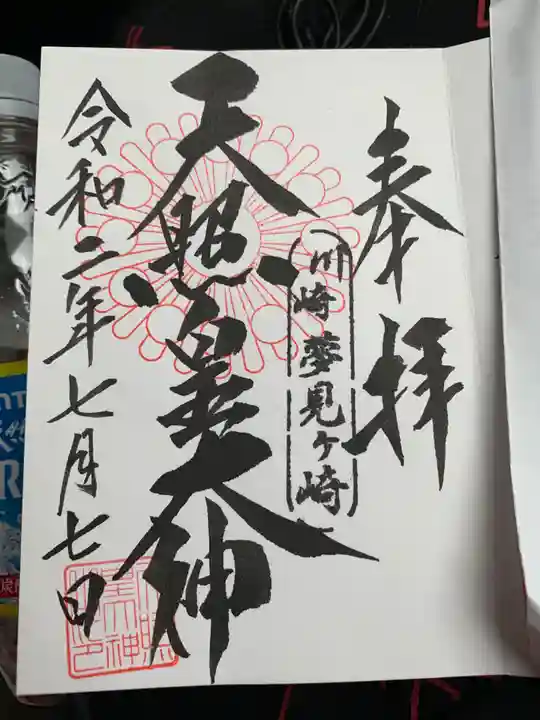 奉拝
（川崎夢見ヶ崎）
天照皇大神
令和二年七月七日